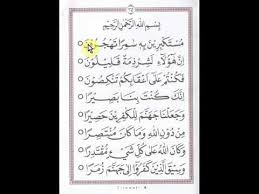 بِسْمِ اللهِ الرَّحْمٰنِ الرَّحِيْمِ
مُسْتَكْبِرِيْنَ بِهٖ سٰمِرًا تَهْجُرُوْنَ
اِنَّ هٰٓؤُلَاۤءِ لَشِرْذِمَةٌ قَلِيْلُوْنَ
فَكُنْتُمْ عَلٰٓى اَعْقَابِكُمْ تَنْكِصُوْنَ
اِنَّكَ كُنْتَ بِنَا بَصِيْرًا
وَجَعَلْنَا جَهَنَّمَ لِلْكٰفِرِيْنَ حَصِيْرًا
مِنْ دُوْنِ اللهِ وَمَا كَانَ مُنْتَصِرًا
وَكَانَ اللهُ عَلٰى كُلِّ شَيْءٍ مُقْتَدِرًا
وَسِيْقَ الَّذِيْنَ كَفَرُوْٓا اِلٰى جَهَنَّمَ زُمَرًا